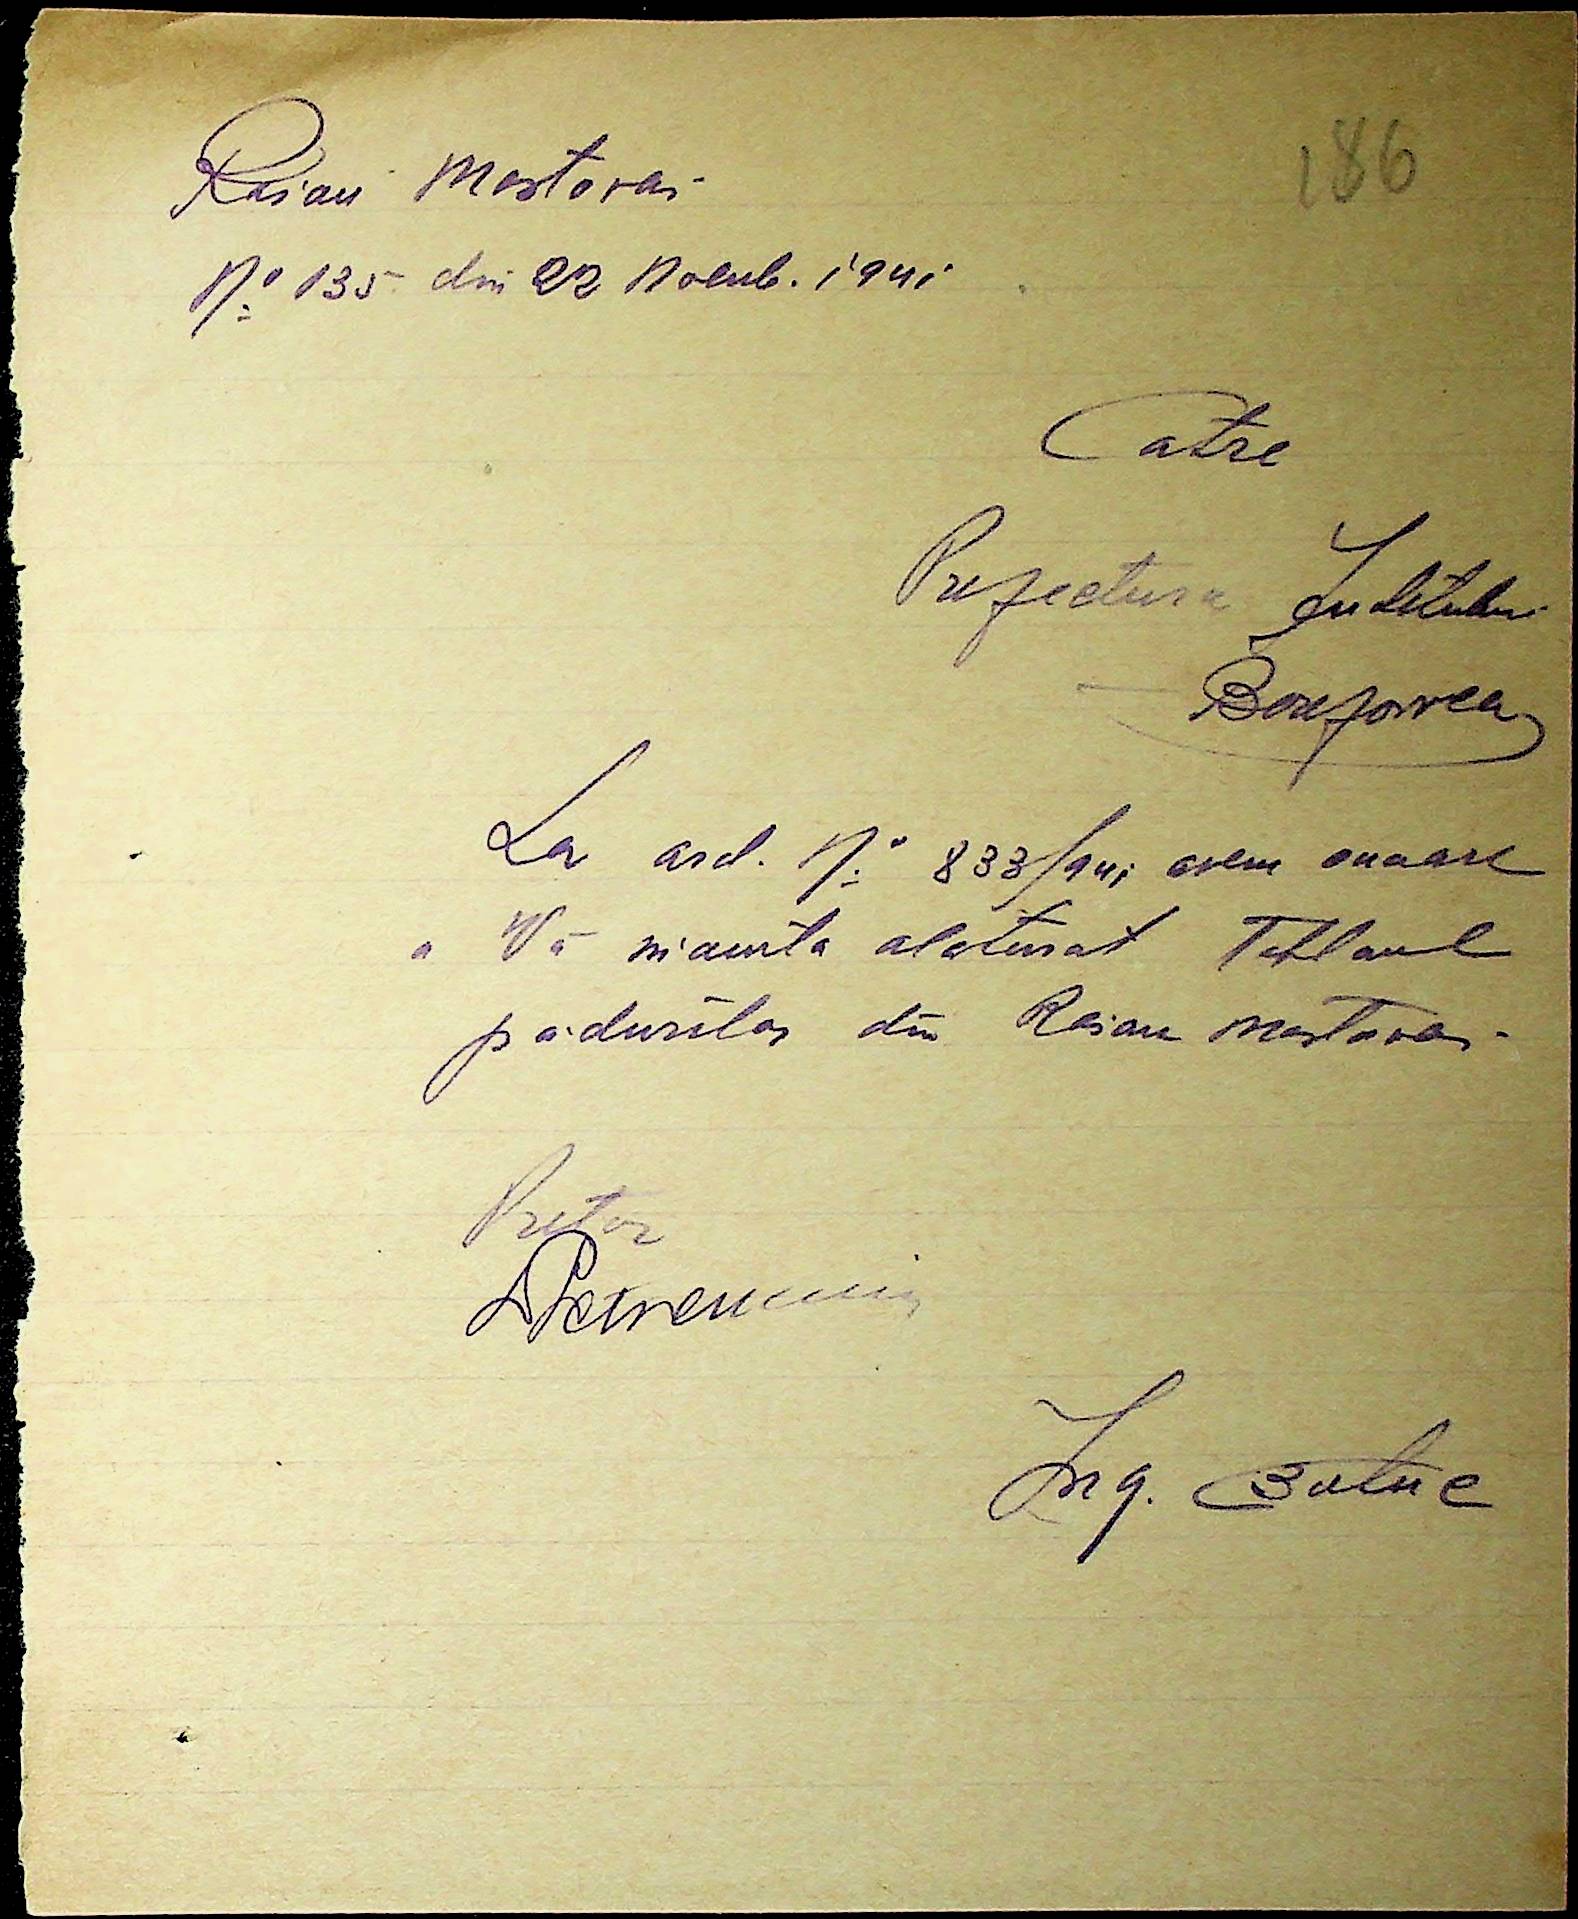 Raion Mostovoi
186
No 135 din 22 Noemb. 1941
Catre
Prefectura Judetului
Berezovca
La ord. No 833/941 avem onoare
a Vă inainta alăturat Tabloul
pădurilor din Raion Mostovoi.
Pretor
Ing.